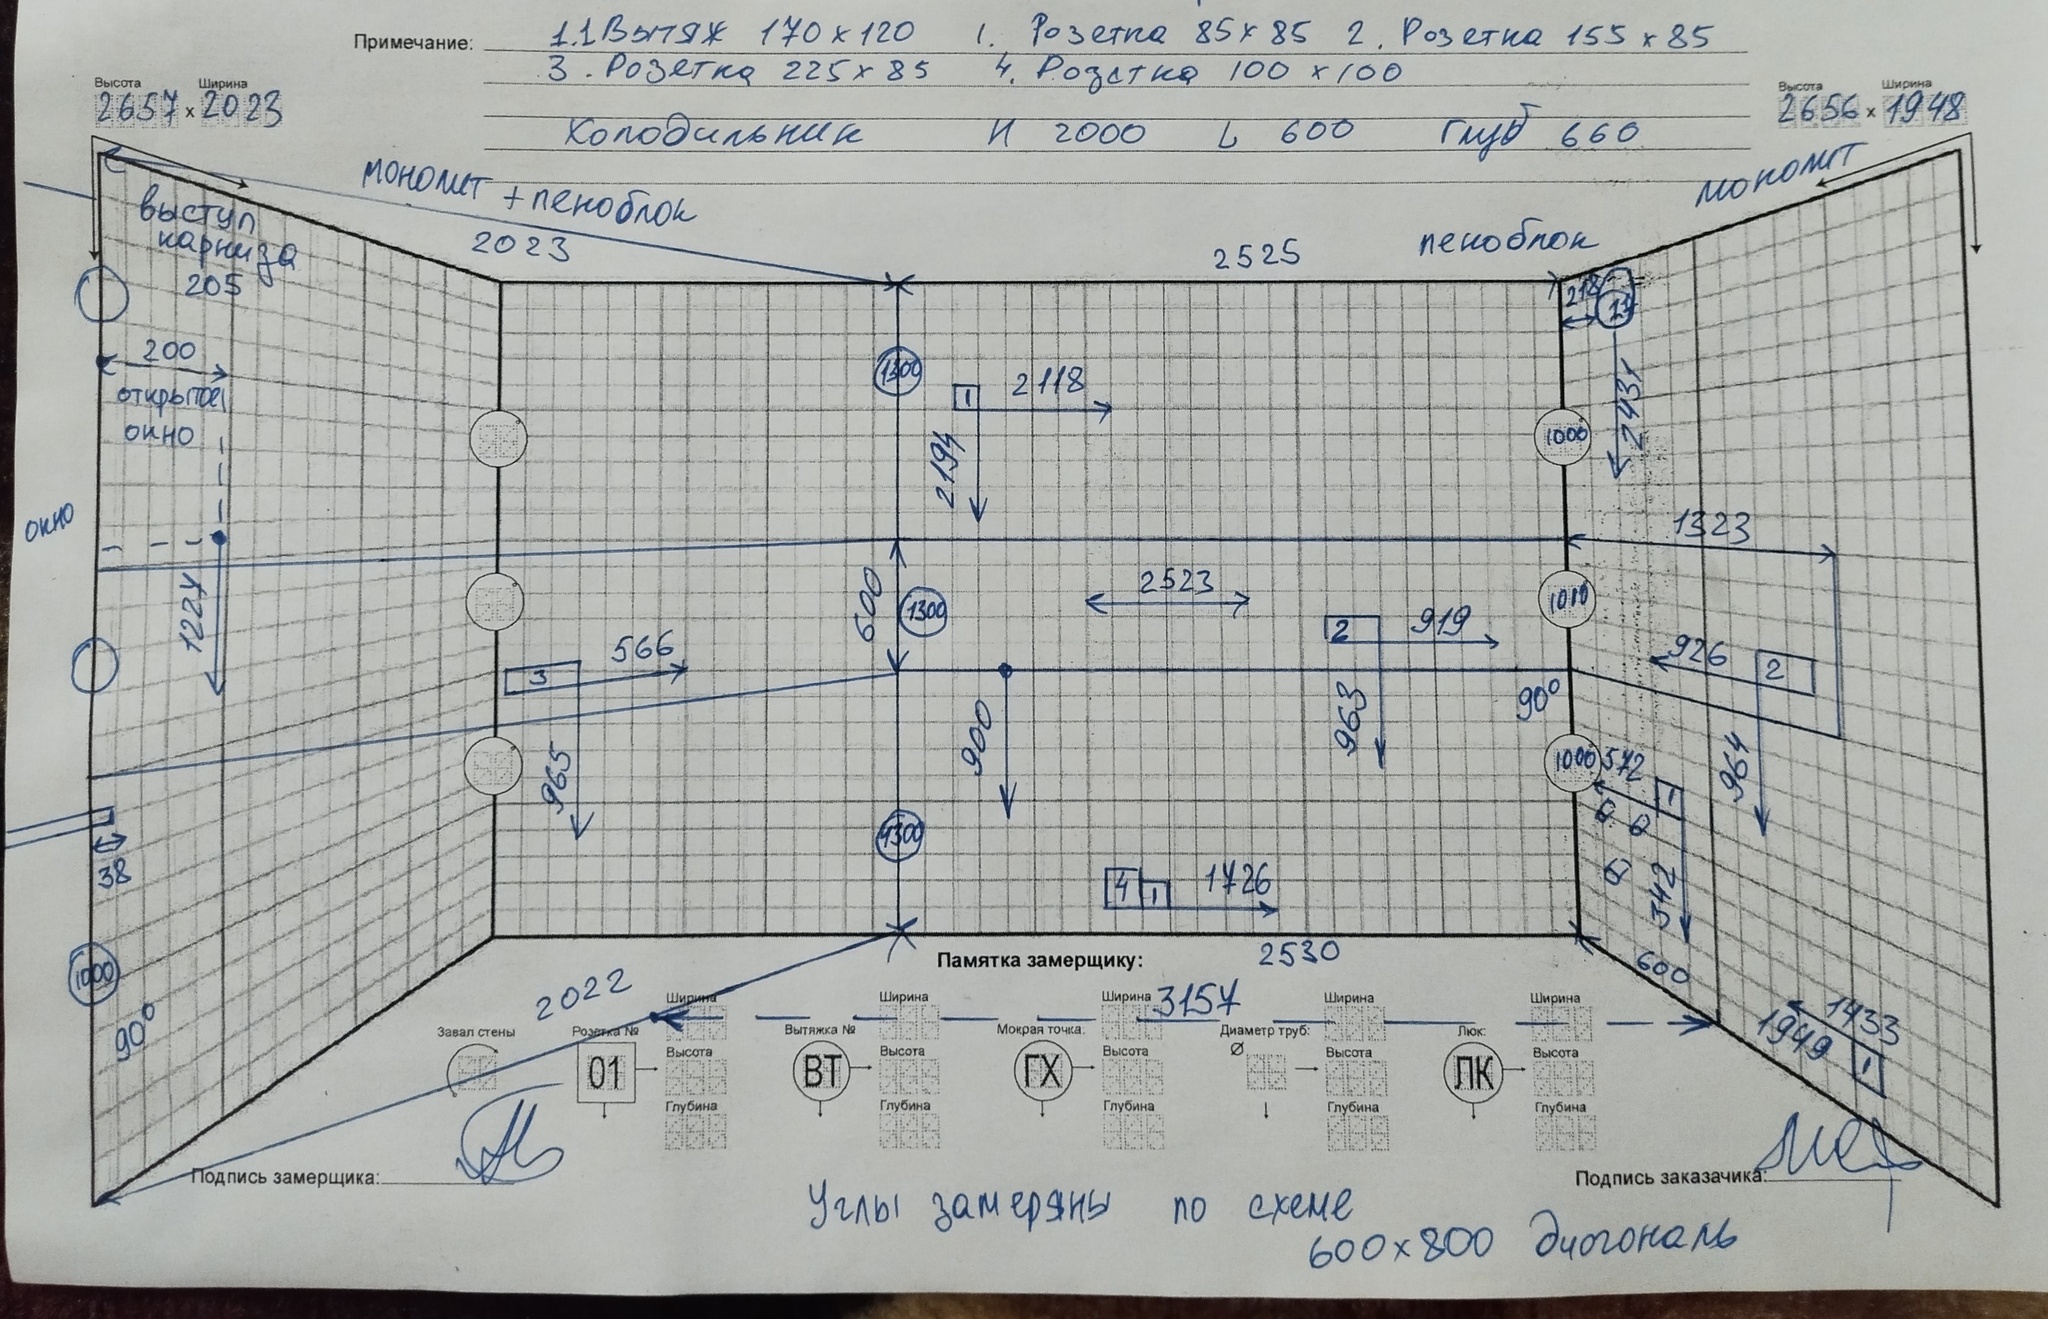 Примечание: 1.1 Вытяж 170 х 120 1. Розетка 85 х 85 2. Розетка 155 х 85
3. Розетка 225 х 85 4. Розетка 100 х 100
Высота Ширина
2657 х 2023
Высота Ширина
2656 х 1948
Холодильник Н 2000 L 600 Глуб 660
монолит + пеноблок
монолит
выступ
карниза
205
2023
2525
пеноблок
218
1.1
200
открытое
окно
1300
1
2118
2194
1000
2431
окно
1227
1323
600
1300
2523
1010
2
919
3
566
926
2
90°
965
900
963
964
1000
572
1
38
1300
342
4
1
1726
1000
90°
2530
600
Памятка замерщику:
2022
3157
1433
1949
1
Завал стены
Розетка № 01
Ширина
Высота
Глубина
Вытяжка № ВТ
Ширина
Высота
Глубина
Мокрая точка: ГХ
Ширина
Высота
Глубина
Диаметр труб: Ø
Ширина
Высота
Глубина
Люк: ЛК
Ширина
Высота
Глубина
Подпись замерщика:
Подпись заказачика:
Углы замеряны по схеме
600х800 диогональ